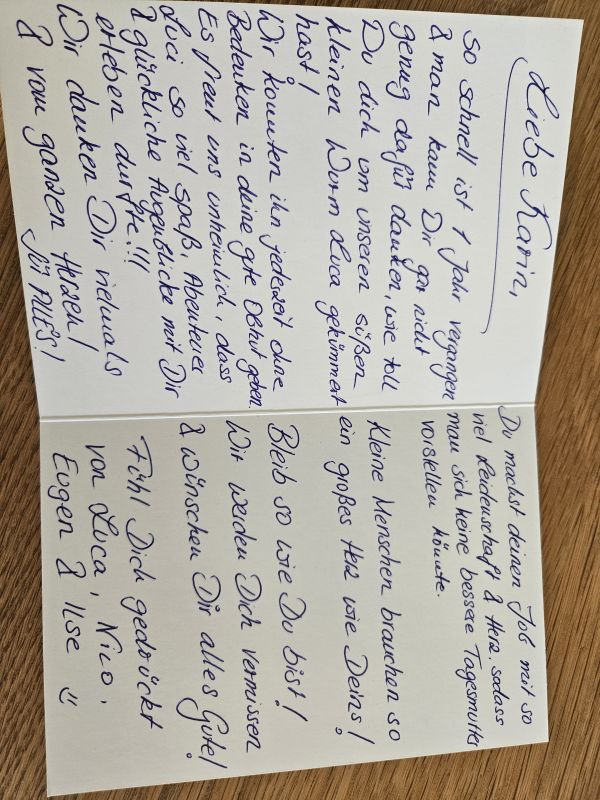 Liebe Karin,
so schnell ist 1 Jahr vergangen
& man kann Dir gar nicht
genug dafür danken, wie toll
Du dich um unseren süßen
kleinen Wurm Luca gekümmert
hast!
Wir konnten ihn jederzeit ohne
Bedenken in deine gte Obhut geben.
Es freut uns unheimlich, dass
Luci so viel Spaß, Abenteuer
& glückliche Augenblicke mit Dir
erleben durfte!!!
Wir danken Dir vielmals
& vom ganzen Herzen!
für ALLES!
Du machst deinen Job mit so
viel Leidenschaft & Herz, sodass
man sich keine bessere Tagesmutter
vorstellen könnte.
Kleine Menschen brauchen so
ein großes Herz wie Deins!
Bleib so wie Du bist!
Wir werden Dich vermissen
& wünschen Dir alles Gute!
Fühl Dich gedrückt
von Luca, Nico,
Eugen & Ilse